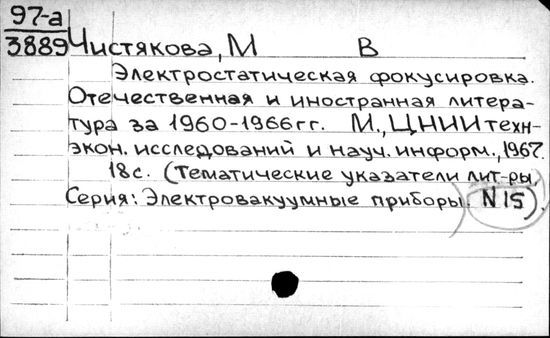 97-а
3889
Чистякова, М В
Электростатическая фокусировка.
Отечественная и иностранная литера-
тура за 1960-1966гг. М., ЦНИИ техн-
экон. исследований и науч. информ., 1967.
18с. (Тематические указатели лит-ры.
Серия: Электровакуумные приборы. N 15).